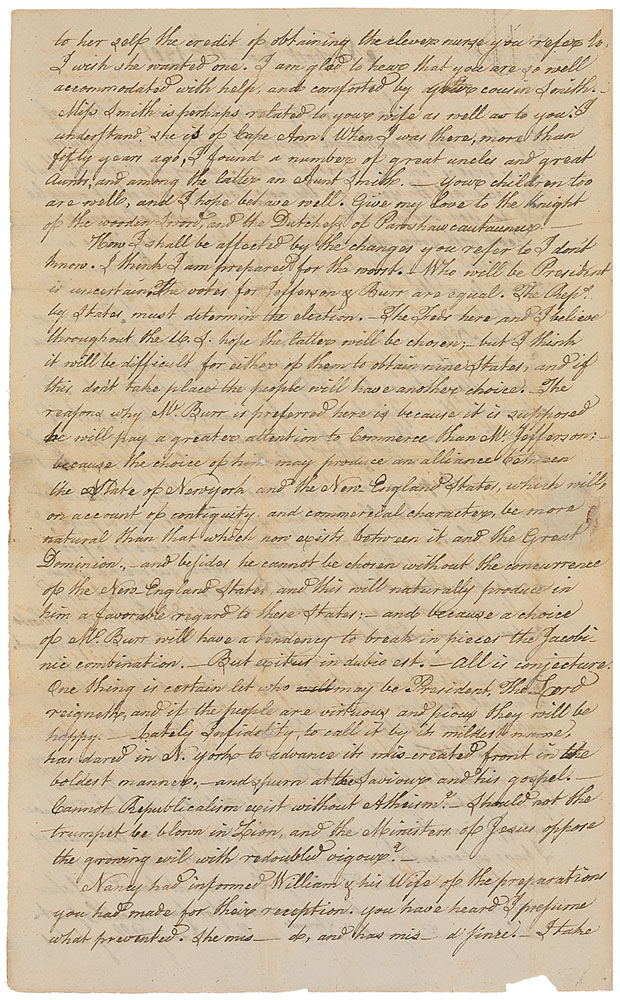 to her self the credit of obtaining the clever nurse you refer to.
I wish she wanted one. I am glad to hear that you are so well
accommodated with help, and comforted by cousin Smith. –
Miss Smith is perhaps related to your wife as well as to you. I
understand she is of Cape Ann. When I was there, more than
fifty years ago, I found a number of great uncles and great
Aunts, and among the latter an Aunt Smith. – your children too
are well, and I hope behave well. Give my love to the Knight
of the wooden sword, and the Dutchess of
How I shall be affected by the changes you refer to I don't
know. I think I am prepared for the worst. – Who will be President
is uncertain. The votes for Jefferson & Burr are equal. The Reps.
by States must determin the election. – The Feds here and I believe
throughout the U. S. hope the latter will be chosen; – but I think
it will be difficult for either of them to obtain nine States, and if
this, don't take place the people will have another choice. – The
reasons why Mr. Burr is preferred here is because it is supposed
he will pay a greater attention to Commerce than Mr. Jefferson; –
because the choice of him may produce an alliance between
the State of Newyork and the New England States, which will,
on account of contiguity, and commercial character, be more
natural than that which now exists between it and the Great
Dominion, – and besides he cannot be chosen without the concurrence
of the New England States, and this will naturally produce in
him a favorable regard to these States; – and because a choice
of Mr. Burr will have a tendency to break in pieces the Jacobi-
nic combination. – But exitus in dubio est. – All is conjecture.
One thing is certain let who will may be President, The Lord
reigneth, and if the people are virtuous and pious they will be
happy. – Lately Infidelity, to call it by its mildest name,
has dared in N. york to advance its mis-created front in the
boldest manner, – and spurn at the Saviour and his gospel. –
Cannot Republicalism exist without Atheism? – Should not the
trumpet be blown in Zion, and the Ministers of Jesus oppose
the growing evil with redoubled vigour? –
Nancy had informed William & his Wife of the preparations
you had made for their reception. you have heard I presume
what prevented. She mis – d, and has mis – d since. – I take